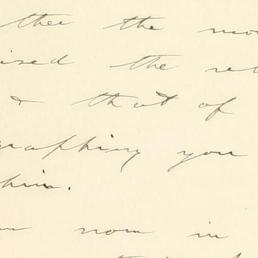 thee the mo
ised the re
& that of
graphing you
him.
now in